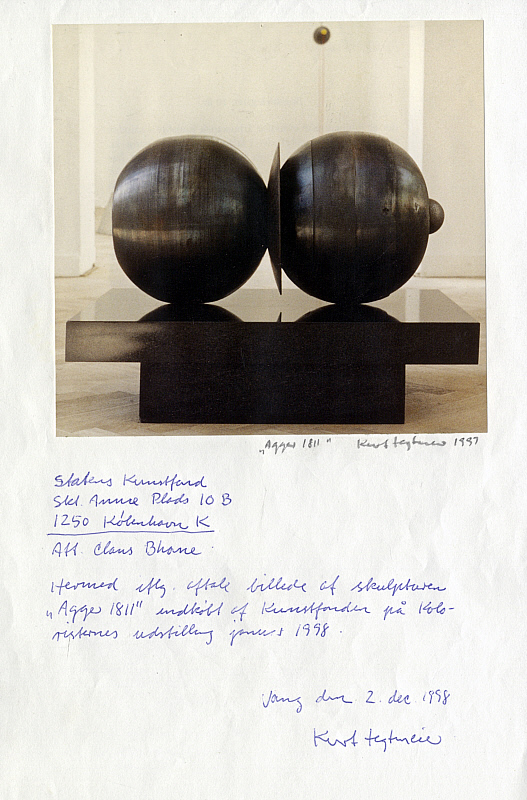 „Agger 1811“ Kurt Tegtmeier 1997
Statens Kunstfond
Skt. Annæ Plads 10 B
1250 København K
Att. Claus Bhone
Hermed iflg. aftale billede af skulpturen
„Agger 1811" indkøbt af Kunstfonden på Kolo-
risternes udstilling januar 1998.
Vang den 2. dec 1998
Kurt Tegtmeier